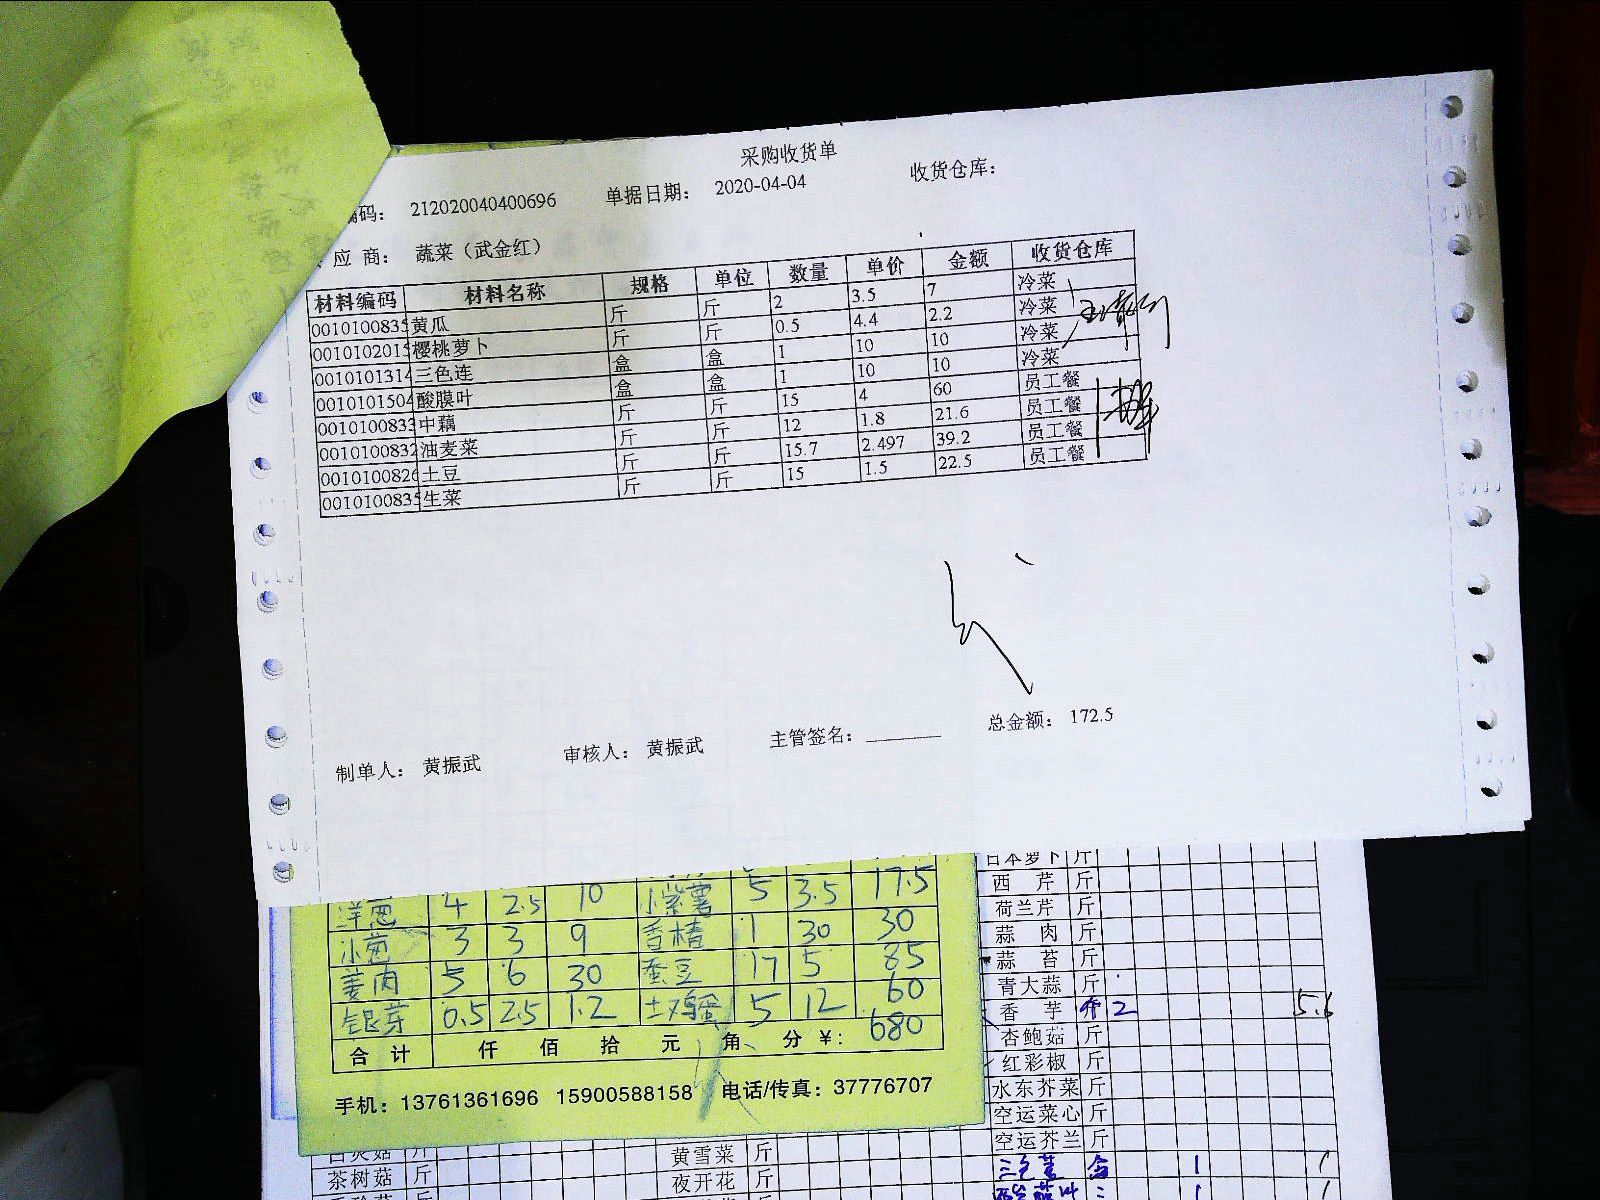 采购收货单
编码： 212020040400696 单据日期： 2020-04-04 收货仓库：
应 商： 蔬菜（武金红）
材料编码 材料名称 规格 单位 数量 单价 金额 收货仓库
0010100835 黄瓜 斤 斤 2 3.5 7 冷菜
0010102015 樱桃萝卜 斤 斤 0.5 4.4 2.2 冷菜
0010101314 三色连 盒 盒 1 10 10 冷菜
0010101504 酸膜叶 盒 盒 1 10 10 冷菜
0010100833 中藕 斤 斤 15 4 60 员工餐
0010100832 油麦菜 斤 斤 12 1.8 21.6 员工餐
0010100826 土豆 斤 斤 15.7 2.497 39.2 员工餐
0010100835 生菜 斤 斤 15 1.5 22.5 员工餐
制单人： 黄振武 审核人： 黄振武 主管签名： 总金额： 172.5
洋葱 4 2.5 10 小紫薯 5 3.5 17.5
小葱 3 3 9 香椿 1 30 30
姜肉 5 6 30 蚕豆 17 5 85
银芽 0.5 2.5 1.2 土鸡蛋 5 12 60
合 计 仟 佰 拾 元 角 分 ¥: 680
手机：13761361696 15900588158 电话/传真：37776707
日本萝卜 斤
西 芹 斤
荷兰芹 斤
蒜 肉 斤
蒜 苔 斤
青大蒜 斤
香 芋 斤 2 5.6
杏鲍菇 斤
红彩椒 斤
水东芥菜 斤
空运菜心 斤
空运芥兰 斤
黄雪菜 斤
茶树菇 斤 夜开花 斤